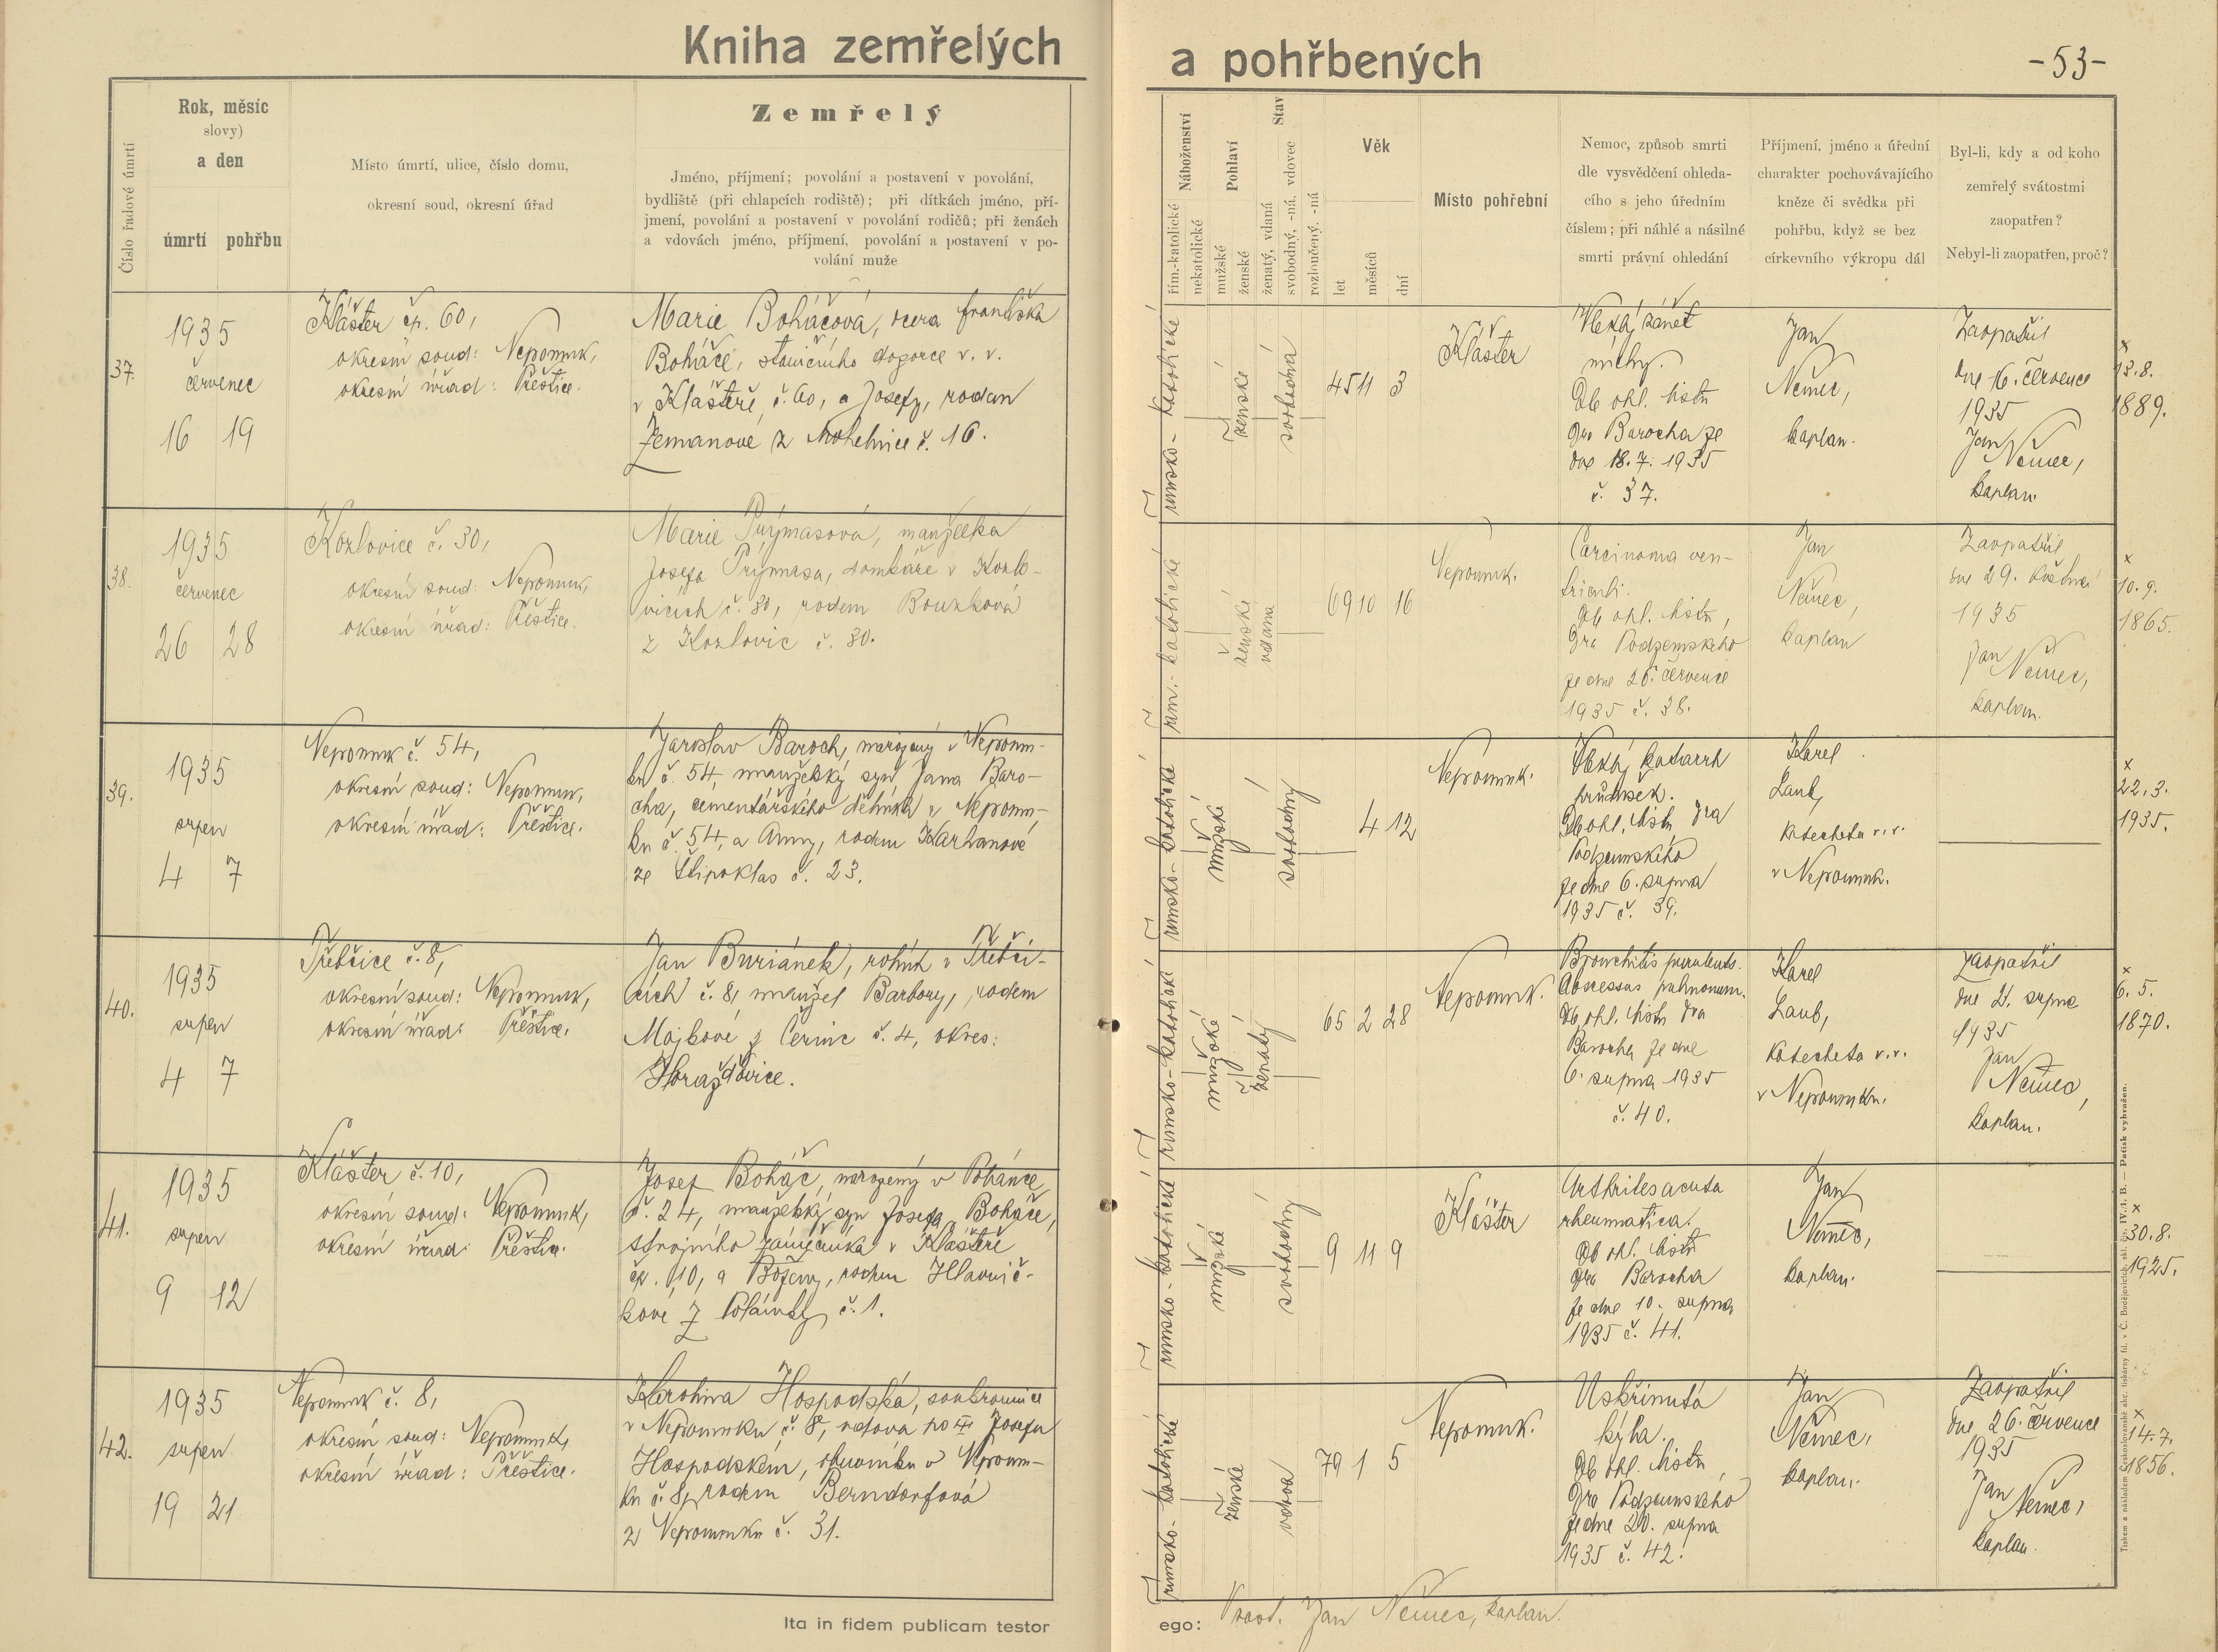 Kniha zemřelých
a pohřbených
-53-
Číslo řadové úmrtí
Rok, měsíc
slovy)
a den
úmrtí pohřbu
Místo úmrtí, ulice, číslo domu,
okresní soud, okresní úřad
Zemřelý
Jméno, příjmení; povolání a postavení v povolání,
bydliště (při chlapcích rodiště); při dítkách jméno, pří-
jmení, povolání a postavení v povolání rodičů; při ženách
a vdovách jméno, příjmení, povolání a postavení v po-
volání muže
Náboženství
řím.-katolické
nekatolické
Pohlaví
mužské
ženské
Stav
ženatý, vdaná
svobodný, -ná, vdovec
rozloučený, -ná
Věk
let
měsíců
dní
Místo pohřební
Nemoc, způsob smrti
dle vysvědčení ohleda-
cího s jeho úředním
číslem; při náhlé a násilné
smrti právní ohledání
Příjmení, jméno a úřední
charakter pochovávajícího
kněze či svědka při
pohřbu, když se bez
církevního výkropu dál
Byl-li, kdy a od koho
zemřelý svátostmi
zaopatřen?
Nebyl-li zaopatřen, proč?
37.
1935
červenec
16 19
Klášter čp. 60,
okresní soud: Nepomuk,
okresní úřad: Přeštice.
Marie Boháčová, dcera Františka
Boháče, staničního dozorce v. v.
v Klášteře, č. 60, a Josefy, rozen
Zemanové z č. 16.
římsko-katolické
ženské
svobodná
45 11 3
Klášter
Vleklý zánět
míchy.
Ob ohl. listu
Dra Barocha ze
dne 18.7. 1935
č. 37.
Jan
Němec,
kaplan.
Zaopatřil
dne 16. července
1935
Jan Němec,
kaplan.
×
13.8.
1889.
38.
1935
červenec
26 28
Kozlovice č. 30,
okresní soud: Nepomuk,
okresní úřad: Přeštice.
Marie Prýmasová, manželka
Josefa Prýmasa, domkáře v Kozlo-
vicích č. 30, rodem Bouzková
z Kozlovic č. 30.
řím.-katolická
ženské
vdaná
69 10 16
Nepomuk.
Carcinoma ven-
triculi.
Ob ohl. listu,
Dra Podzemského
ze dne 26. července
1935 č. 38.
Jan
Němec,
kaplan
Zaopatřil
dne 29. května
1935
Jan Němec,
kaplan.
×
10.9.
1865.
39.
1935
srpen
4 7
Nepomuk č. 54,
okresní soud: Nepomuk,
okresní úřad: Přeštice.
Jaroslav Baroch, narozený v Nepomu-
ku č. 54, manželský syn Jana Baro-
cha, cementářského dělníka v Nepomu-
ku č. 54, a Anny, rodem Karhanové
ze Štipoklas č. 23.
římsko-katolické
mužské
svobodný
4 12
Nepomuk.
Vleklý katarrh
průdušek.
Ob ohl. listu Dra
Podzemského
ze dne 6. srpna
1935 č. 39.
Karel
Laub,
katecheta v.v.
v Nepomuk.
×
22.3.
1935.
40.
1935
srpen
4 7
Třebčice č. 8,
okresní soud: Nepomuk,
okresní úřad: Přeštice.
Jan Buriánek, rolník v Třebči-
cích č. 8, manžel Barbory, rodem
Majbové z č. 4, okres:
Horažďovice.
římsko-katolické
mužské
ženatý
65 2 28
Nepomuk.
Bronchitis purulenta.
Abscessus pulmonum.
Ob ohl. listu Dra
Barocha ze dne
6. srpna 1935
č. 40.
Karel
Laub,
katecheta v.v.
v Nepomuku.
Zaopatřil
dne 2. srpna
1935
Jan
Němec,
kaplan.
×
6. 5.
1870.
41.
1935
srpen
9 12
Klášter č. 10,
okresní soud: Nepomuk,
okresní úřad: Přeštice.
Josef Boháč, narozený v
č. 24, manželský syn Josefa Boháče,
strojního zámečníka v Klášteře
čp. 10, a Boženy, rodem Hlavnič-
kové z č. 1.
římsko-katolické
mužské
svobodný
9 11 9
Klášter
Arthritis acuta
rheumatica.
Ob ohl. listu
Dra Barocha
ze dne 10. srpna
1935 č. 41.
Jan
Němec,
kaplan.
×
30.8.
1925.
42.
1935
srpen
19 21
Nepomuk č. 8,
okresní soud: Nepomuk,
okresní úřad: Přeštice.
Karolina Hospodská, soukromnice
v Nepomuku č. 8, vdova po Josefu
Hospodském, obuvníku v Nepomu-
ku č. 8, rodem Berndorfová
z Nepomuku č. 31.
římsko-katolické
ženské
vdova
79 1 5
Nepomuk.
Uskřinutá
kýla.
Ob ohl. listu
Dra Podzemského
ze dne 20. srpna
1935 č. 42.
Jan
Němec,
kaplan.
Zaopatřil
dne 26. července
1935
Jan
Němec,
kaplan.
×
14.7.
1856.
Ita in fidem publicam testor
ego: Jan Němec, kaplan.